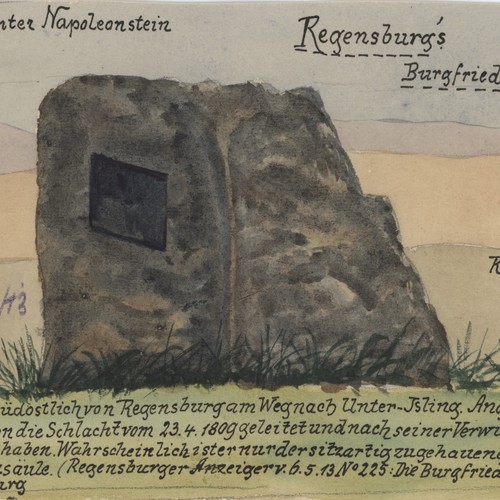 nter Napoleonstein
Regensburg's
Burgfried
südostlich von Regensburg am Weg nach Unter-Isling. An
on die Schlacht vom 23.4.1809 geleitet und nach seiner Verw
haben. Wahrscheinlich ist er nur der sitzartig zugehauen
säule. (Regensburger Anzeiger v. 6.5.13 No 225: Die Burgfried
urg